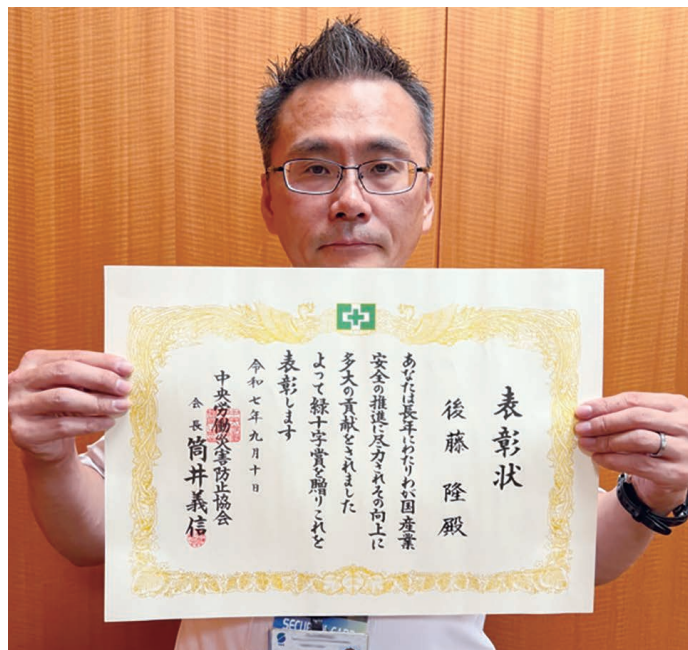 表彰状
後藤隆殿
あなたは長年にわたりわが国産業
安全の推進に尽力されその向上に
多大の貢献をされました
よって緑十字賞を贈りこれを
表彰します
令和七年九月十日
中央労働災害防止協会
会長 筒井義信